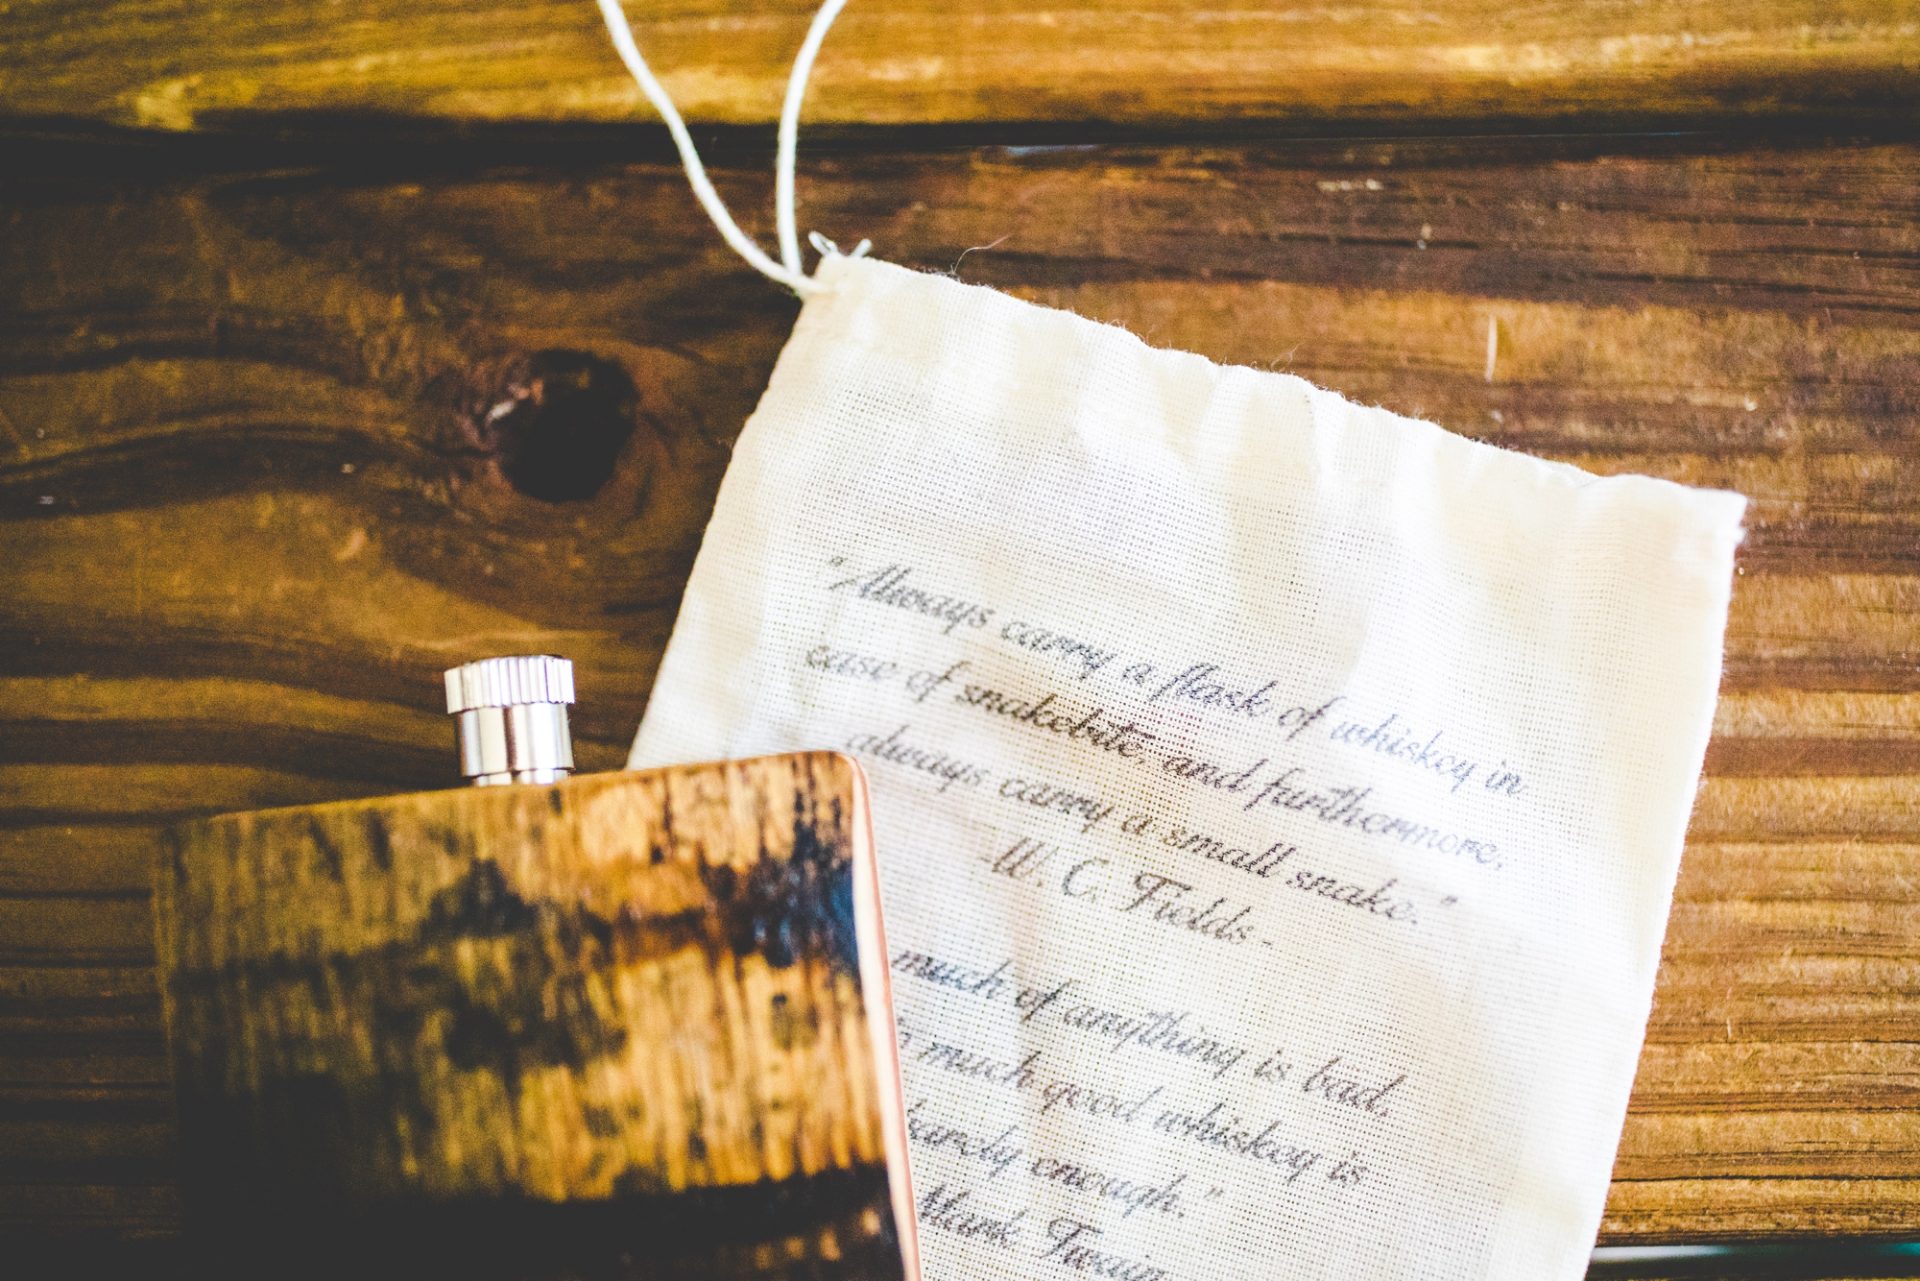 "Always carry a flask of whiskey in
case of snakebite, and furthermore,
always carry a small snake."
-W. C. Fields-
much of anything is bad,
much good whiskey is
barely enough."
Mark Twain